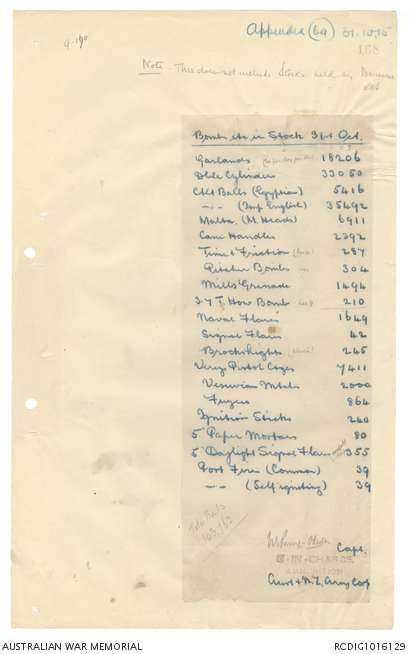 Appendix (69) 31.10.15
158
Note - This does not include Stocks held by
Bombs etc in Stock 31st Oct.
Garlands 18206
Dble Cylinder 33050
Ckt Balls (Egyptian) 5416
-..- (Imp English) 35492
Malta. (M. Heads) 6911
Cane Handles 2392
Time & Friction 287
Pitcher Bombs 304
Mills Grenade 1494
3.7 T. How Bomb 210
Naval Flares 1649
Signal Flares 42
Brocks Lights 245
Verys Pistol Cges 7411
Vesuvian Metals 2000
Fuzes 864
Ignition Sticks 240
5" Paper Mortars 80
5" Daylight Signal Flares 355
Port Fires (Common) 39
-..- (Self igniting) 39
103,163
Capt.
O-IN-CHARGE
AMMUNITION
Aust & N.Z. Army Corp
AUSTRALIAN WAR MEMORIAL
RCDIG1016129